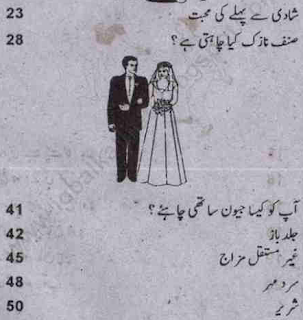 شادی سے پہلے کی محبت 23
صنف نازک کیا چاہتی ہے؟ 28
آپ کو کیسا جیون ساتھی چاہئے؟ 41
جلد باز 42
غیر مستقل مزاج 45
سرد مہر 48
شریر 50